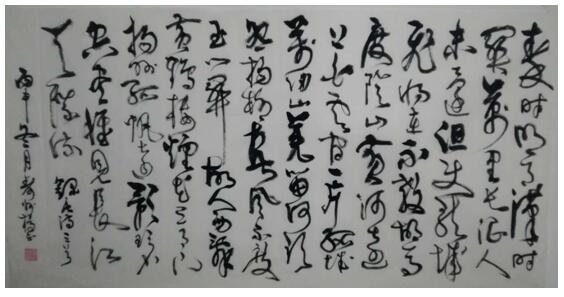 秦时明月漢时
關萬里长征人
未还但使龙城
飞将在不教胡马
度阴山黄河远
上白雲间一片孤城
萬仞山羌笛何须
怨杨柳春风不度
玉门关故人西辞
黄鹤楼烟花三月下
扬州孤帆远影碧
空尽唯见长江
天际流 录唐诗三首
丙申冬月